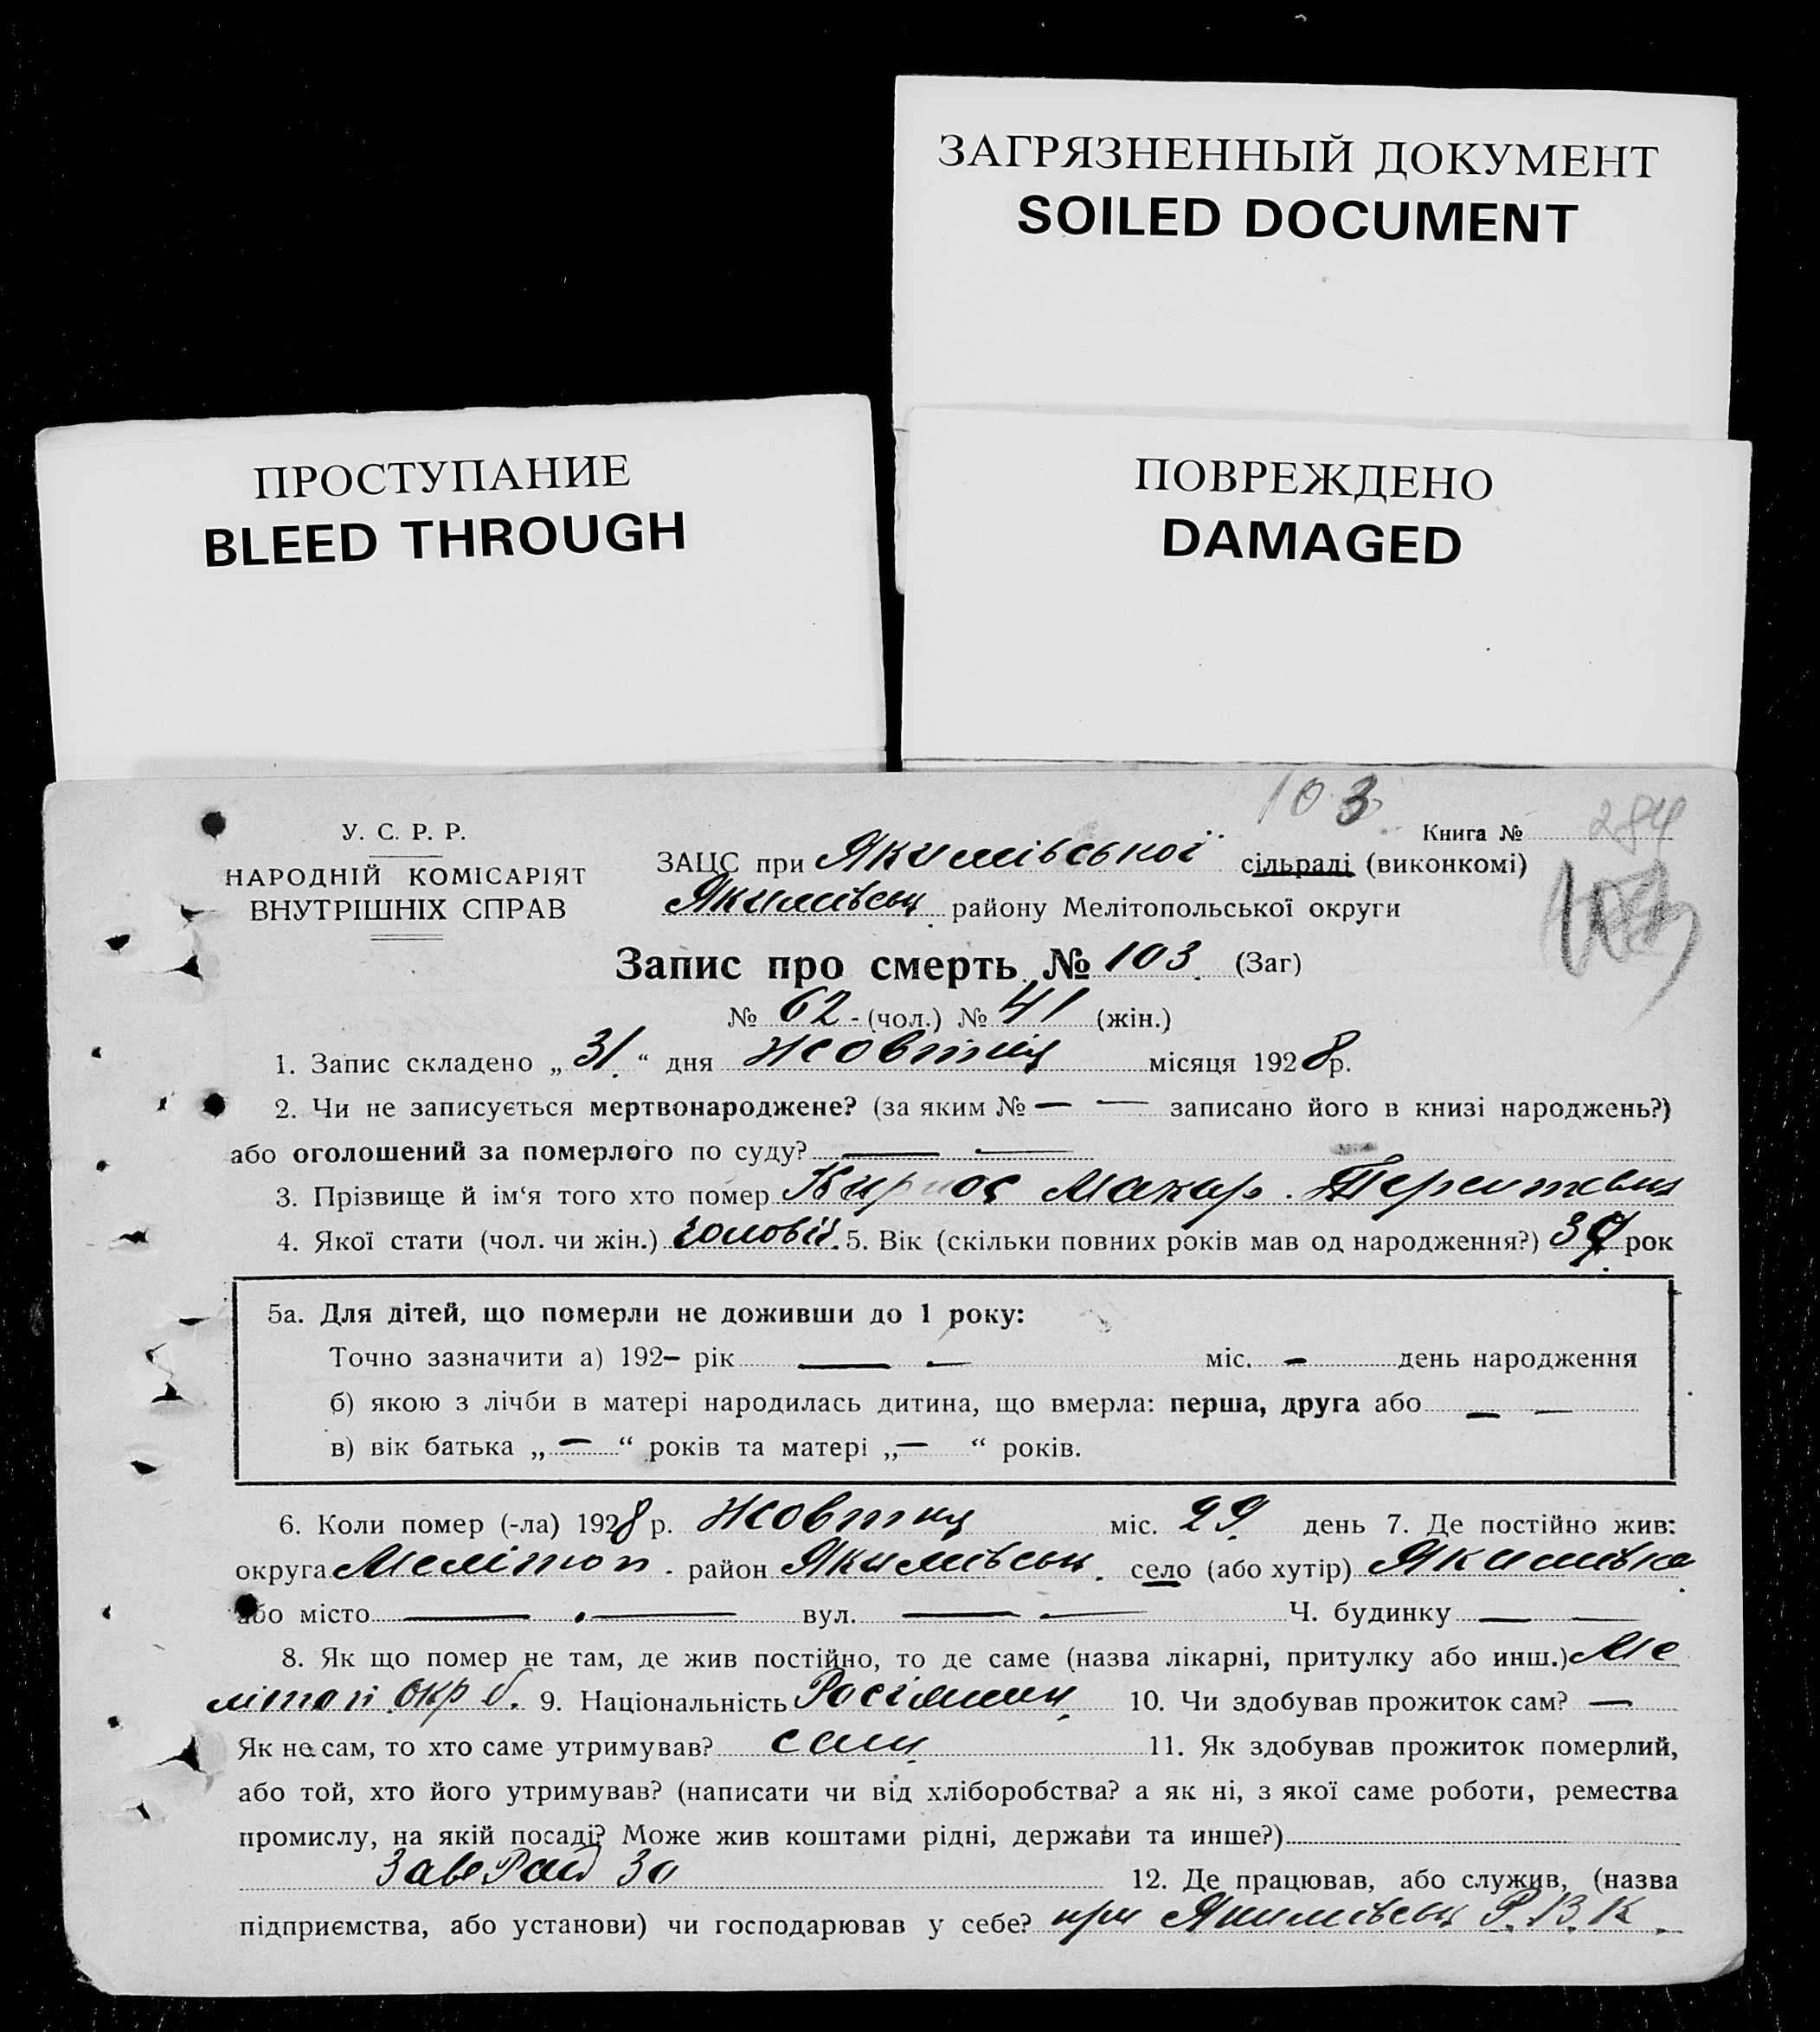 ЗАГРЯЗНЕННЫЙ ДОКУМЕНТ
SOILED DOCUMENT
ПРОСТУПАНИЕ
BLEED THROUGH
ПОВРЕЖДЕНО
DAMAGED
103
У. С. Р. Р.
НАРОДНІЙ КОМІСАРІЯТ
ВНУТРІШНІХ СПРАВ
Книга № 284
ЗАЦС при Якимівської сільраді (виконкомі)
Якимівськ. району Мелітопольської округи
Запис про смерть № 103. (Заг)
№ 62 - (чол.) № 41 (жін.)
1. Запис складено „ 31 “ дня жовтня місяця 1928 р.
2. Чи не записується мертвонароджене? (за яким № — — записано його в книзі народжень?)
або оголошений за померлого по суду? — —
3. Прізвище й ім‘я того хто помер Макар
4. Якої стати (чол. чи жін.) чоловіч. 5. Вік (скільки повних років мав од народження?) 39 рок
5а. Для дітей, що померли не доживши до 1 року:
Точно зазначити а) 192– рік — — міс. – день народження
б) якою з лічби в матері народилась дитина, що вмерла: перша, друга або — —
в) вік батька „ — “ років та матері „ — “ років.
6. Коли помер (-ла) 1928 р. жовтня міс. 29 день 7. Де постійно жив:
округа Мелітоп. район Якимівськ. село (або хутір) Якимівка
або місто — — вул. — — Ч. будинку — —
8. Як що помер не там, де жив постійно, то де саме (назва лікарні, притулку або инш.) Ме
літоп окр б. 9. Національність Росіянин 10. Чи здобував прожиток сам? —
Як не сам, то хто саме утримував? сам 11. Як здобував прожиток померлий,
або той, хто його утримував? (написати чи від хліборобства? а як ні, з якої саме роботи, ремества
промислу, на якій посаді? Може жив коштами рідні, держави та инше?)
12. Де працював, або служив, (назва
підприємства, або установи) чи господарював у себе? при Якимівськ Р. В. К.